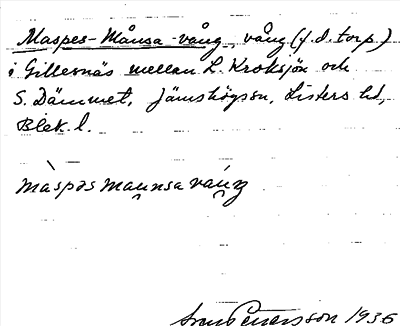 Maspes-Månsa-vång, vång (f.d. torp)
i Gillesnäs mellan L. Kroksjön och
S. Dämmet, Jämshögssn, Listers hd,
Blek. l.
màspəs maunsa váng
Sven Petersson 1936